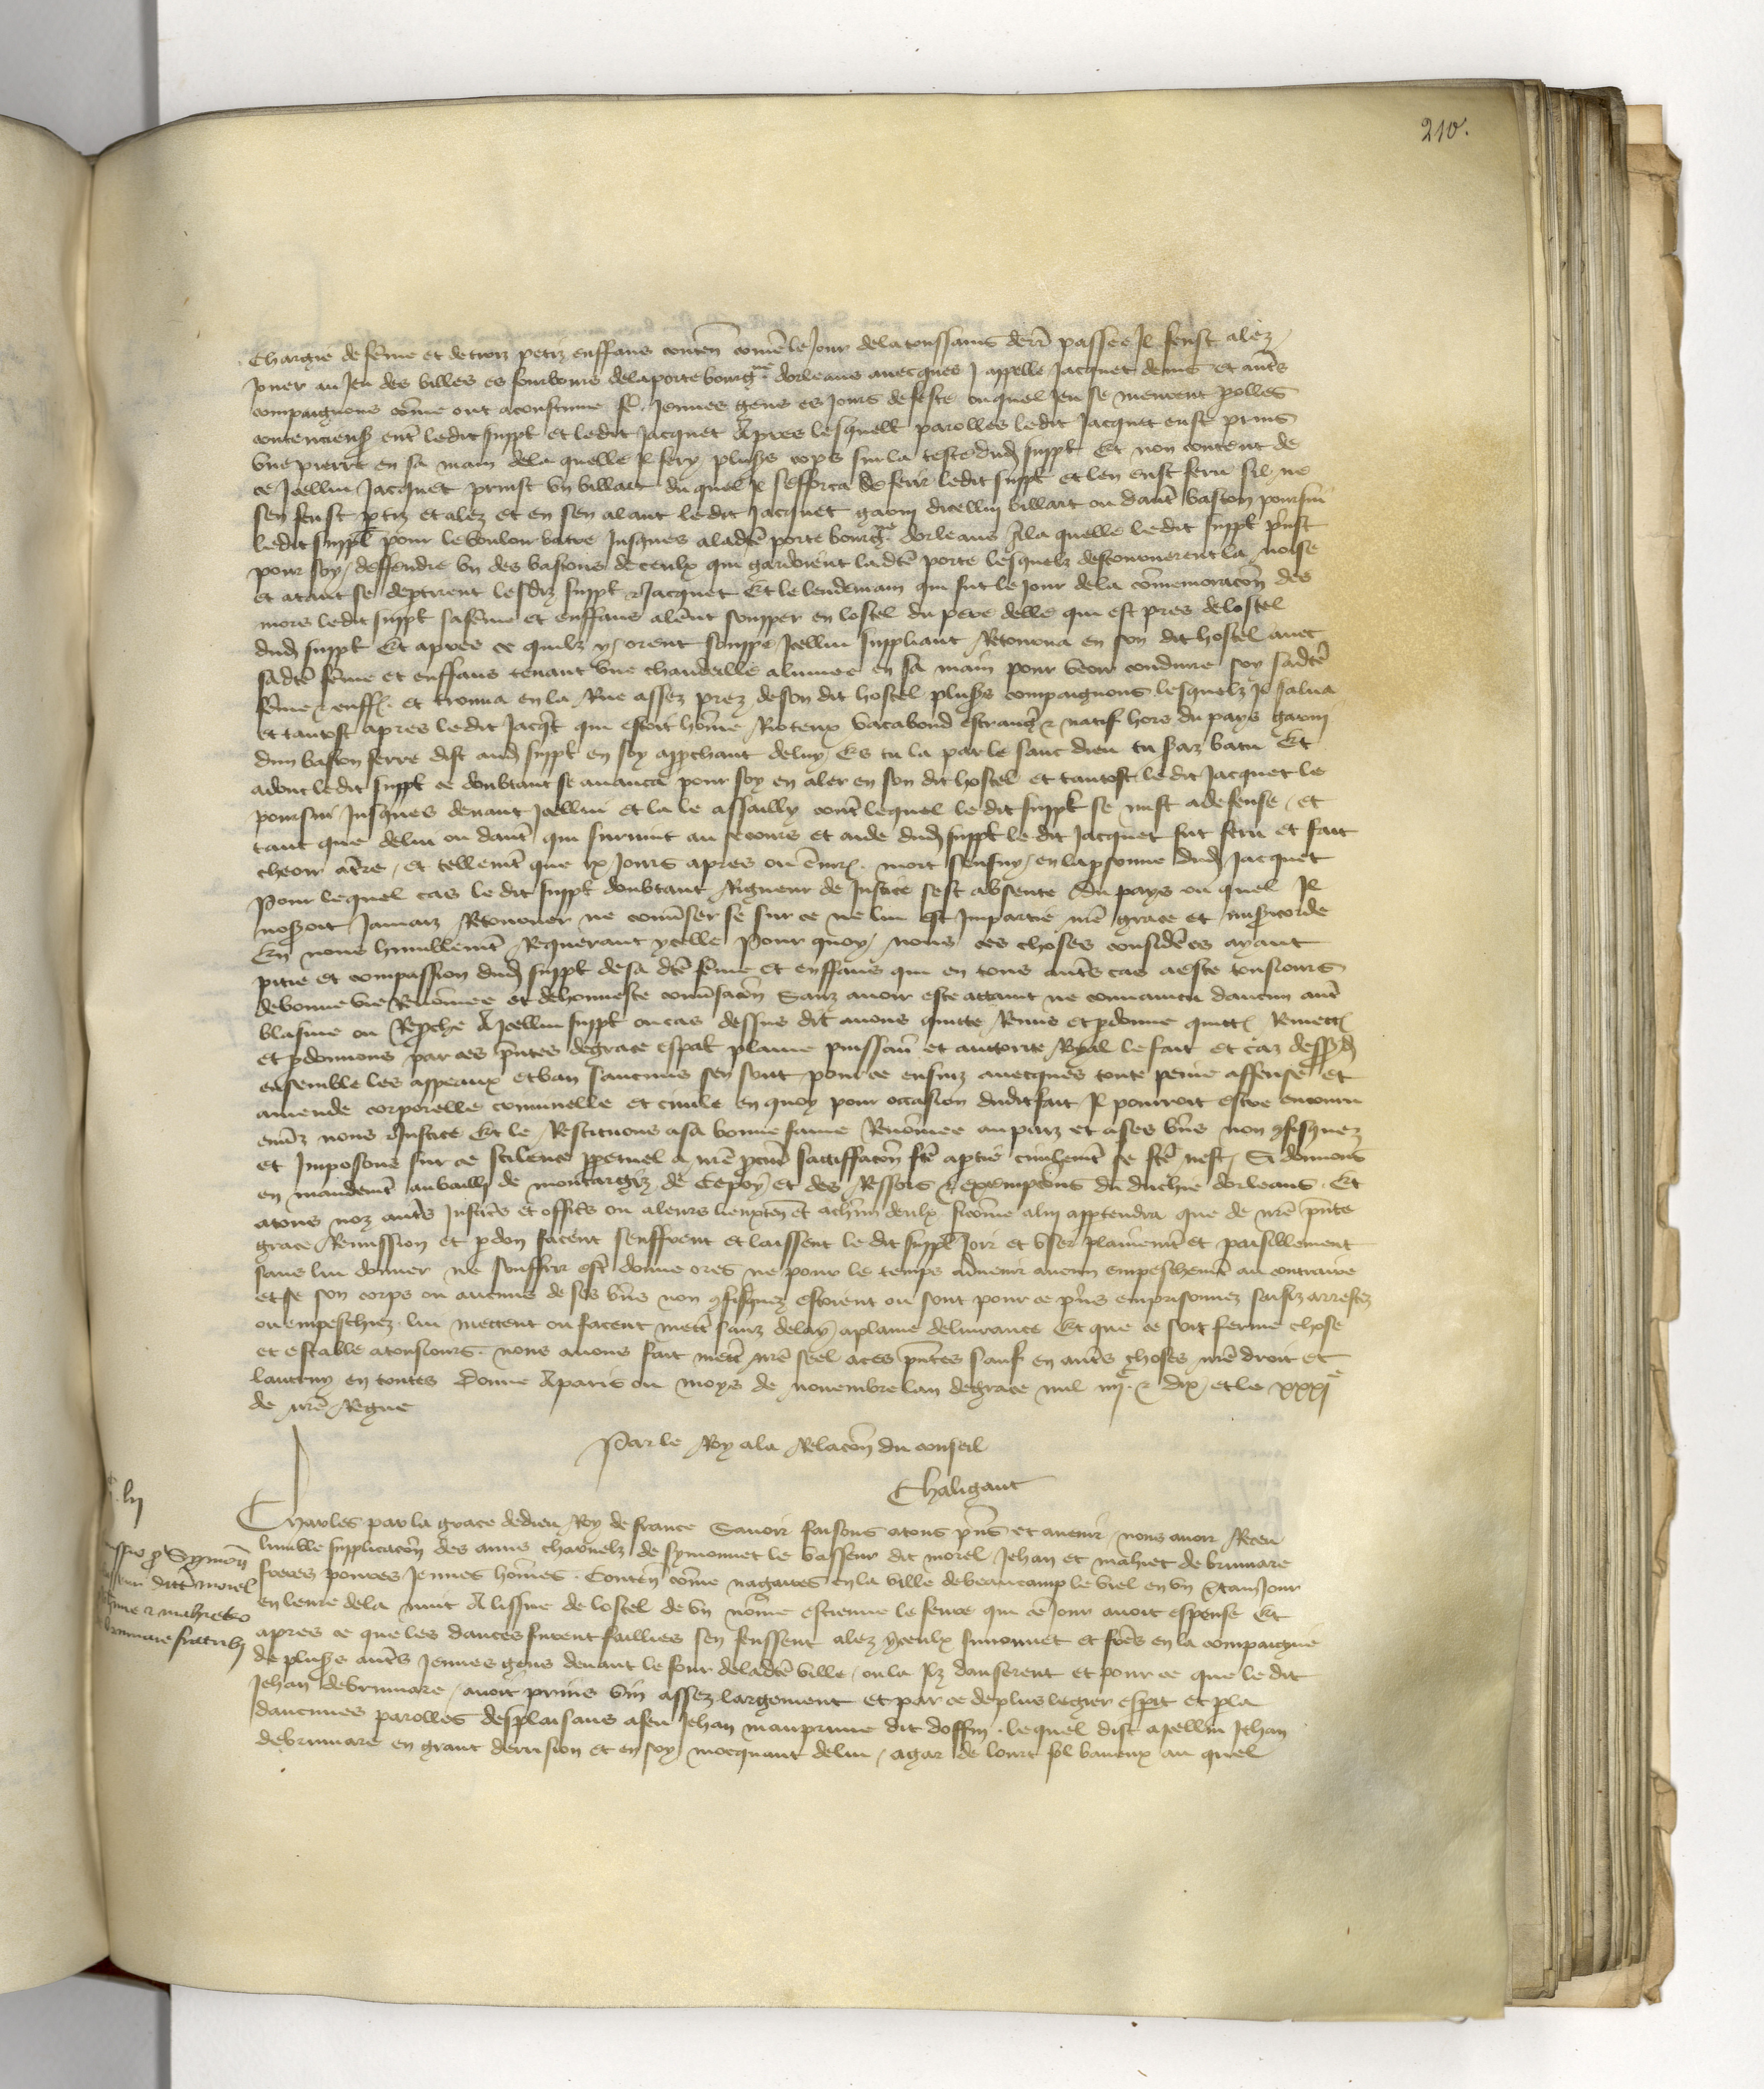 210.
chargié de fēme et de trois petiz enffans conten̄ com̄e le Jour de la toussains derr̄ passee Il feust alez
Jouer au Jeu des billes es fourbours de la porte bourg.ne dorleans auecques j appellé Jacquet et aut̄s
compaignons cōme ont acoustumé fē. Jeunes gens es Jours de feste ou quel Jeu se meurent polles
contencieuses ent̄ ledit suppt et ledit Jacquet Apres lesquelles parolles ledit Jacquet eust prins
vne pierre en sa main de la quelle Il fery plus̄s cops sur la teste dud suppt Et non content de
ce Icellui Jacquet prinst vn billart du quel Il sefforca de ferir ledit suppt et len eust feru sil ne
sen feust ptiz et alez et en sen alant le dit Jacquet garni dicellui billart ou daut̄ baston poursui
ledit suppt pour le vouloir batre Jusques a ladte porte bourg.ne dorleans A la quelle le dit suppt p̄nst
pour soy deffendre vn des bastons de ceulx qui gardoient ladte porte lesquelz destournerent la noise
et atant se deptirent lesdiz suppt & Jacquet Et le lendemain qui fut le Jour de la cōmemoracōn des
mors ledit suppt sa fēme et enffans alerēt soupper en lostel du pere delle qui est pres de lostel
dud suppt Et apres ce quilz y orent souppé Icellui suppliant Retourna en son dit hostel auec
sadte fēme et enffans tenant vne chandeille alumee en sa main pour veoir conduire soy sadte
fēme & enff. et trouua en la Rue assez prez de son dit hostel plus̄s compaignons lesquelz Il salua
et tantost apres ledit Jacqt qui estoit hōme Rioteux vacabond estranḡ & natif hors du pays garni
dun baston ferré dist aud suppt en soy approchant de luy Es tu la par le sanc dieu tu s̄az batu Et
adont ledit suppt ce doubtant se auanca pour soy en aler en son dit hostel et tantost le dit Jacquet le
poursui Jusques deuant Icellui et la le assailly cont̄ lequel le dit suppt se mist a defense et
tant que de lui ou daut̄ qui suruint au secours et aide dud suppt le dit Jacquet fut feru et fait
cheoir a t̄re et tellemt̄ que ix Jours apres ou enuir̄. mort sensuy en la psonne dud Jacquet
Pour lequel cas le dit suppt doubtant Rigueur de Justice sest absenté du pays ou quel Il
noseroit Jamaiz Retourner ne conūser se sur ce ne lui est Impartie nr̄e grace et mis̄icorde
En nous humblemt̄ Requerant ycelle Pour quoy nous ces choses considēes ayant
pitié et compassion dud suppt de sa dte fēme et enffans qui en tous aut̄s cas a esté tousiours
de bonne vie Renōmee et de honneste conūsacōn Sanz auoir esté attaint ne conuaincu daucun aut̄
blasme ou Reproche A Icellui suppt ou cas dessus dit auons quitté Remis et pdonné quitt. Remett.
et pdonnons par ces p̄ntes de grace espāl plaine puissan̄ et auctorité Royal le fait et cas dessusd
ensemble les appeaux et ban saucuns sen sont pour ce ensuiz auecques toute peine offense et
amende corporelle criminelle et ciuile en quoy pour occasion dudit fait Il pourroit estre encouru
enūs nous & Justice Et le Restituons a sa bonne fame Renōmee au paiz et a ses bn̄s non 9fisquez
et Imposons sur ce scilence ppetuel a nr̄e pcur̄ satisffacōn fte aptie ciuilemt̄ se fte nest Si donnons
en mandemt̄ au bailli de montargiz de Cepoy et des Ressors & exempcōns du duchie dorleans Et
a tous noz aut̄s Justic̄s et officīs ou a leurs lieuxten̄ et a chun deulx sicōme a lui apptendra que de nr̄e p̄nte
grace Remission et pdon facent seuffrent et laissent le dit suppt Joir et vser plainemt̄ et paisiblement
sans lui donner ne souffrir est̄ donné ores ne pour le temps aduenir aucun empeschemt̄ au contraire
et se son corps ou aucuns de ses bn̄s non 9fisquez estoient ou sont pour ce p̄ns emprisonnez saisiz arrestez
ou empeschiez lui mettent ou facent mett̄ sanz delay a plaine deliurance Et que ce soit ferme chose
et estable a tousiours. nous auons fait mett̄ nr̄e seel a ces p̄ntes sauf en aut̄s choses nr̄e droit et
lautruy en toutes Donné A paris ou moys de nouembre lan de grace mil iiijc & dix et le xxxje
de nr̄e Regne
Par le Roy a la Relacōn du conseil
Chaligaut
. lij
Symon
morel
& mahieto
Charles par la grace de dieu Roy de france Sauoir faisons a tous p̄ns et auenir nous auoir Receu
lumble supplicacōn des amis charnelz de symonnet le vasseur dit morel Jehan et mahiet de brimare
freres poures Jeunes hōmes. Conten̄ cōme nagaires en la ville de beaucamp le viel en vn c̄tain Jour
en leure de la nuit A lissue de lostel de vn nōmé estienne le feure qui ce Jour auoit espousé Et
apres ce que les dances furent faillies sen feussent alez yceulx simonnet et fr̄es en la compaignie
de plus̄s aut̄s Jeunes gens deuant le four de ladte ville ou la Ilz danserent et pour ce que le dit
Jehan de brimare auoit prins vin assez largement et par ce de plus legier esp̄it et pla
daucunes parolles desplaisans a feu Jehan mauprime dit doffin. lequel dist a Icellui Jehan
de brimare en grant derrision et en soy mocquant de lui agar de lourt fol baueux au quel